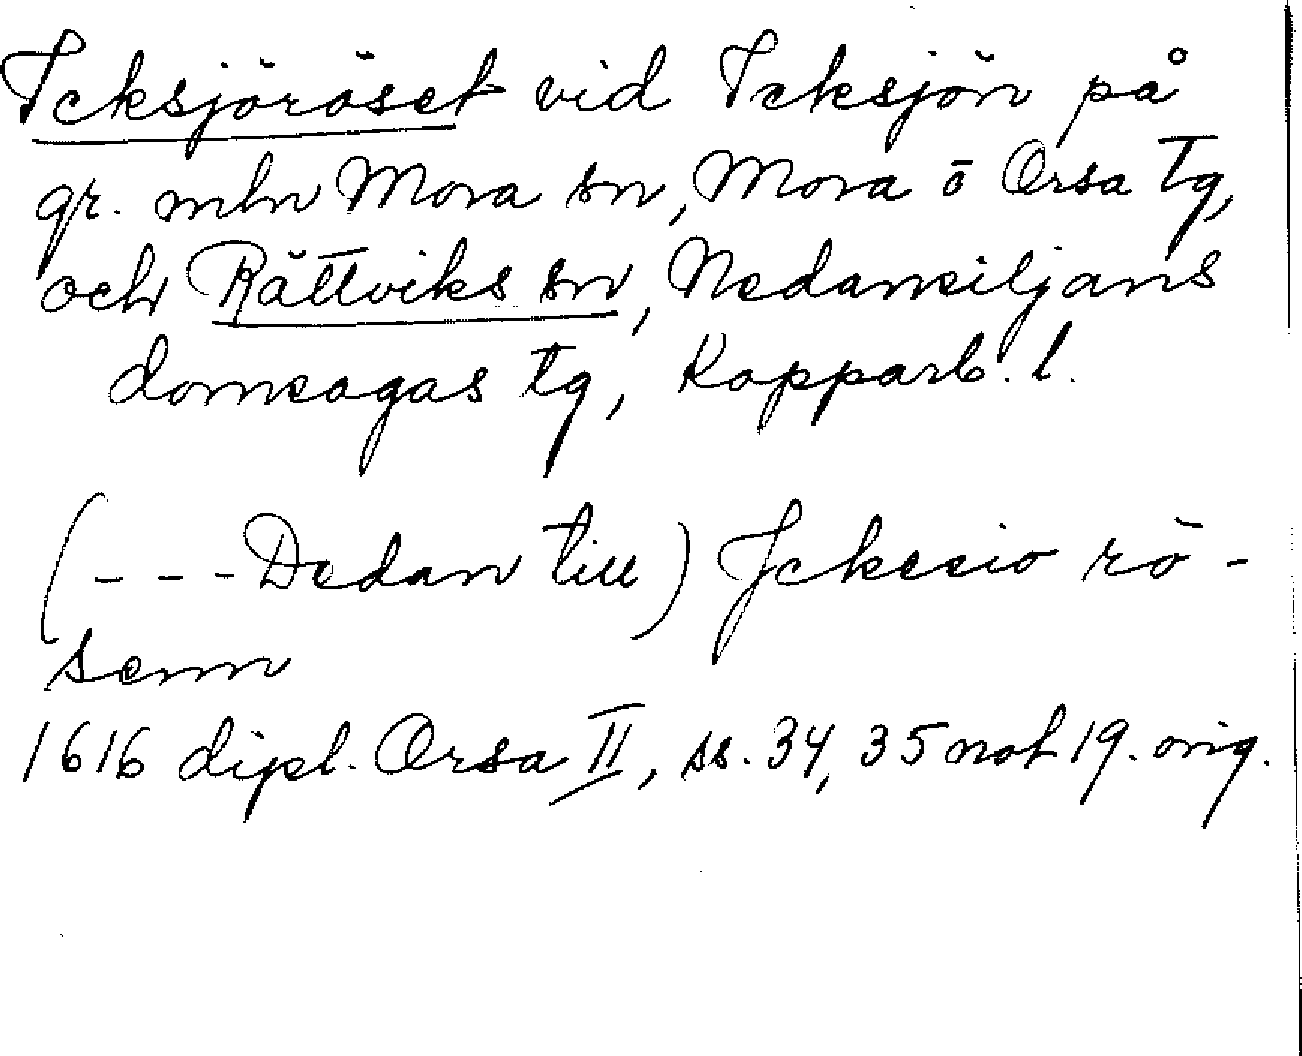 Icksjöröset vid Icksjön på
gr. mln Mora sn, Mora o Orsa tg,
och Rättviks sn, Nedansiljans
domsagas tg, Kopparb. l.
(- - - Dedan till) Jckesio rö-
senn
1616 dipl. Orsa II, ss. 34, 35 not 19. orig.